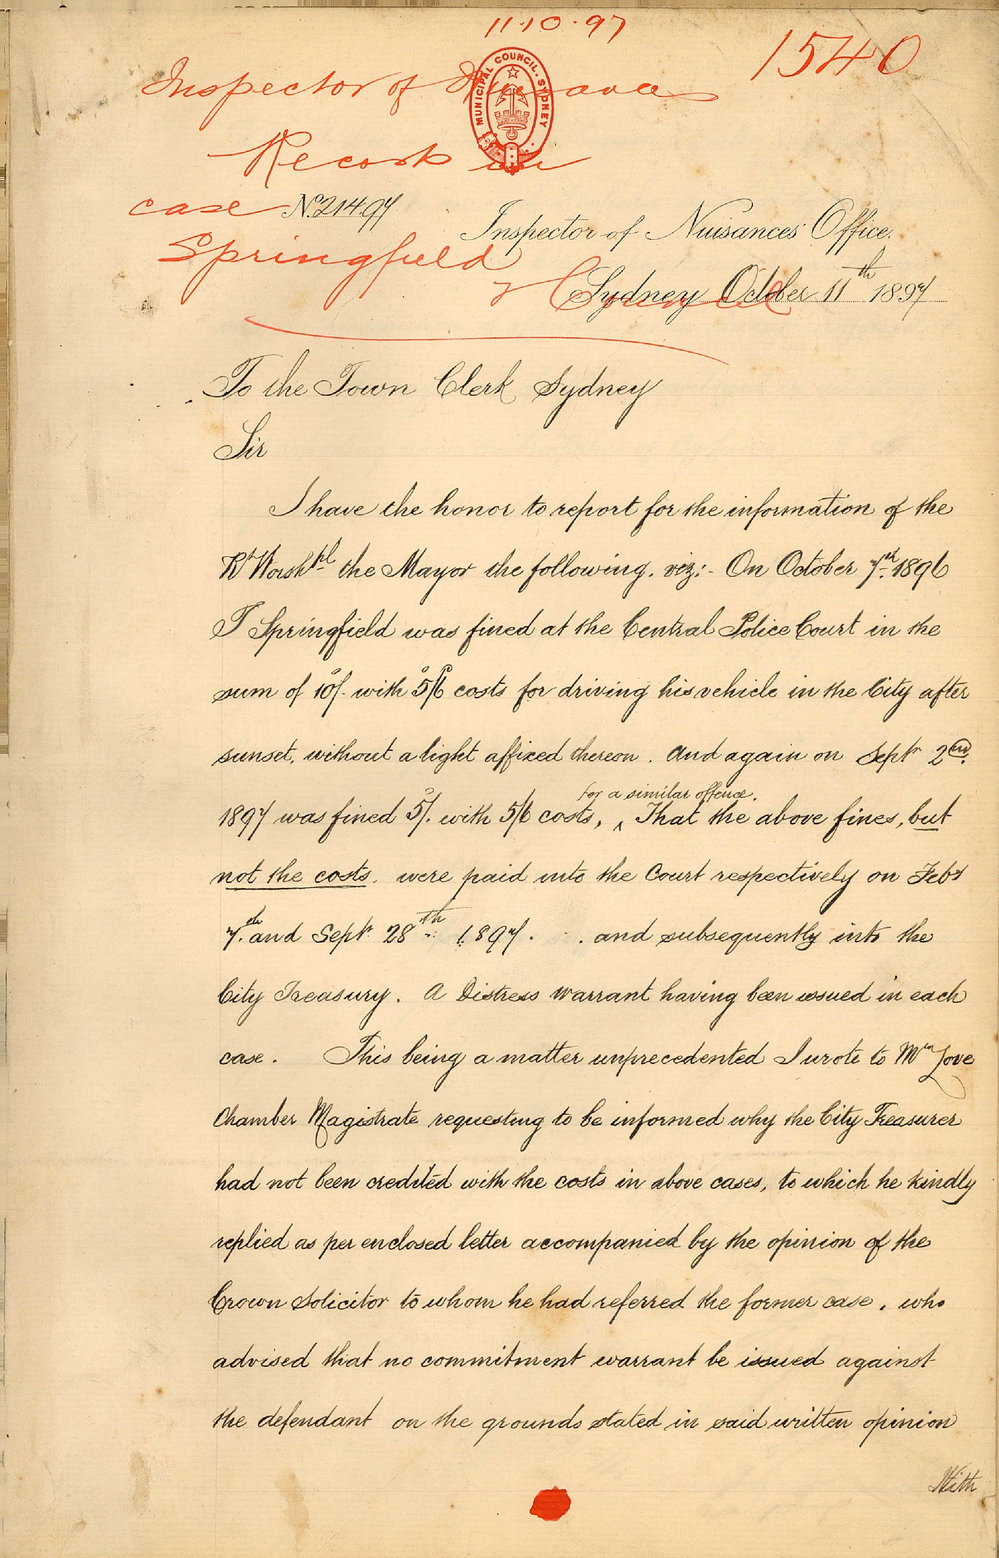 11.10.97
1540
MUNICIPAL COUNCIL. SYDNEY
Inspector of
Records in
case No. 214.97
Springfield
Inspector of Nuisances' Office.
Sydney October 11th 1897
To the Town Clerk Sydney
Sir
I have the honor to report for the information of the
Rt Worshpl the Mayor the following. viz:- On October 7th 1896
T Springfield was fined at the Central Police Court in the
sum of 10/- with 5/6 costs for driving his vehicle in the City after
sunset, without a light affixed thereon. And again on Septr 2nd.
for a similar offence.
1897 was fined 5/. with 5/6 costs, ‸ That the above fines, but
not the costs. were paid into the Court respectively on Feby
7th. and Septr 28th 1897. . and subsequently into the
City Treasury. A Distress warrant having been issued in each
case. This being a matter unprecedented I wrote to Mr Love
Chamber Magistrate requesting to be informed why the City Treasurer
had not been credited with the costs in above cases, to which he kindly
replied as per enclosed letter accompanied by the opinion of the
Crown Solicitor to whom he had referred the former case, who
advised that no commitment warrant be issued against
the defendant on the grounds stated in said written opinion
With